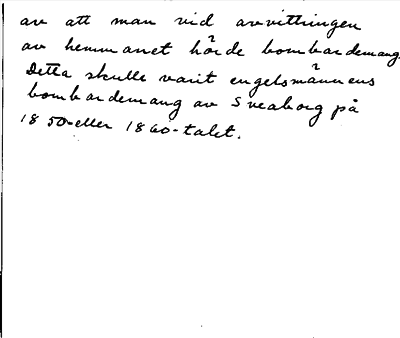 av att man vid avvittringen
av hemmanet hörde bombardemang.
Detta skulle varit engelsmännens
bombardemang av Sveaborg på
1850-eller 1860-talet.